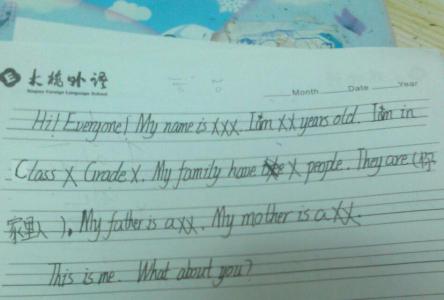 大桥外语
Foreign Language School
Month Date Year
Hi! Everyone! My name is XXX. I'm XX years old. I'm in
Class X Grade X. My family have X people. They are (你
家里人). My father is a XX. My mother is a XX.
This is me. What about you?